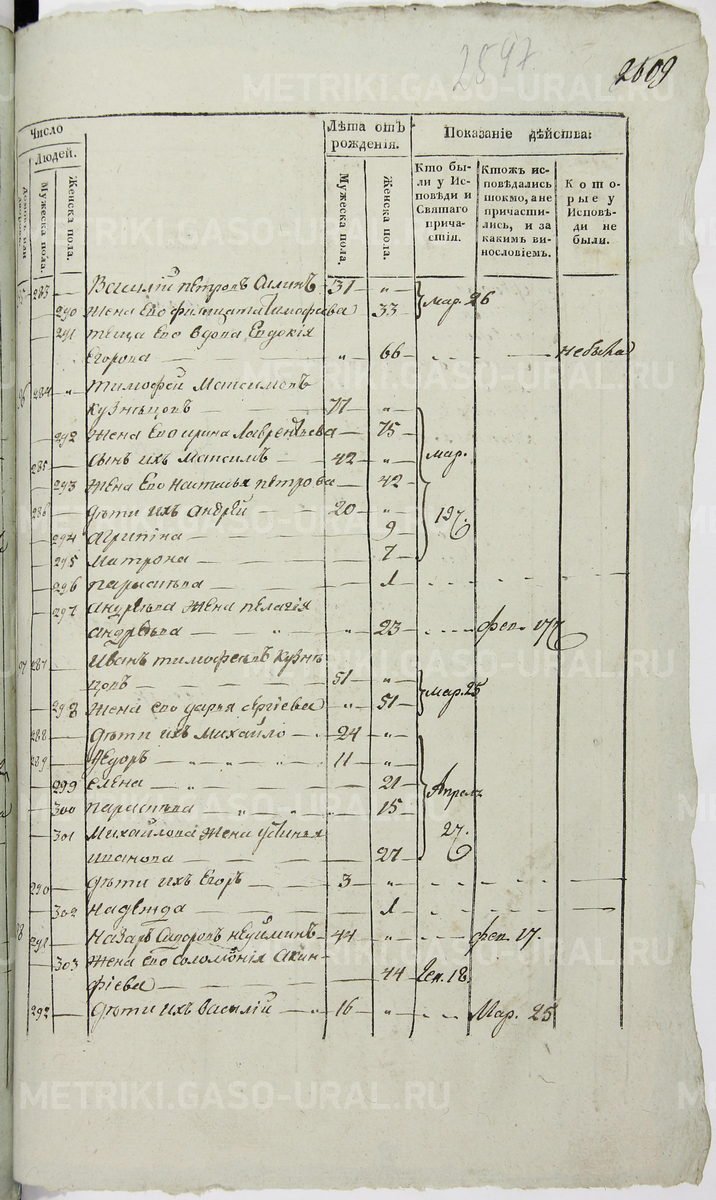 2597.
2609
Число
Людей.
Мужеска пола.
Женска пола.
Лѣта отъ рожденія.
Мужеска пола.
Женска пола.
Показаніе дѣйства:
Кто бы-
ли у Ис-
повѣди и
Святаго
прича-
стія.
Ктожъ ис-
повѣдались
токмо, а не
причасти-
лись, и за
какимъ ви-
нословіемъ.
Кото-
рые у
Исповѣ-
ди не
были.
283 — Василій Петровъ — 31 „ Мар. 26
290 жена его Тимофеева 33
291 теща его вдова Евдокія
Егорова — „ 66 — — не была
284 „ Тимофей Максимовъ
Кузнѣцовъ — 77 „
292 жена его Ирина Лаврентьева — 75
285 — сынъ ихъ Максимъ — 42 „ Мар.
293 жена его Наталья Петрова — 42
286 — дѣти ихъ Андрей — 20 „ 19
294 Агрипина — 9
295 Матрона — 7
296 Парасковья — 1
297 Андрѣева жена Пелагія
Андрѣева — „ 23 фев. 17
287 Иванъ Тимофеевъ Кузнѣ
цовъ — 51 „ Мар. 25
298 жена его Дарья Сергіева „ 51
288 — дѣти ихъ Михайло — 24 „
289 — Федоръ — 11 „
299 Елена — 21
300 — 15 Апрель
301 Михайлова жена Устинья 27.
Иванова — 27
290 — дѣти ихъ Егоръ — 3 „
302 Надежда — 1
291 — Назаръ Сидоровъ — 44 „ фев. 17.
303 жена его Соломонія Акин-
фіева — 44 18
292 — дѣти ихъ Василій — „ 16 „ Мар. 25
METRIKI.GASO-URAL.RU